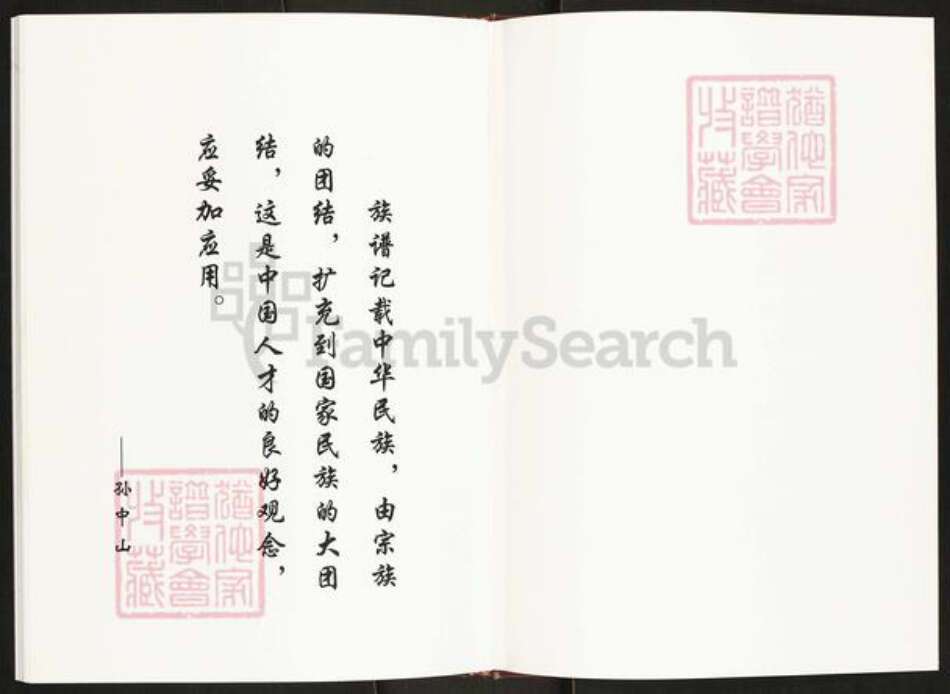 族谱记载中华民族，由宗族
的团结，扩充到国家民族的大团
结，这是中国人才的良好观念，
应妥加应用。
——孙中山
FamilySearch
猶他家
譜學會
收藏
猶他家
譜學會
收藏